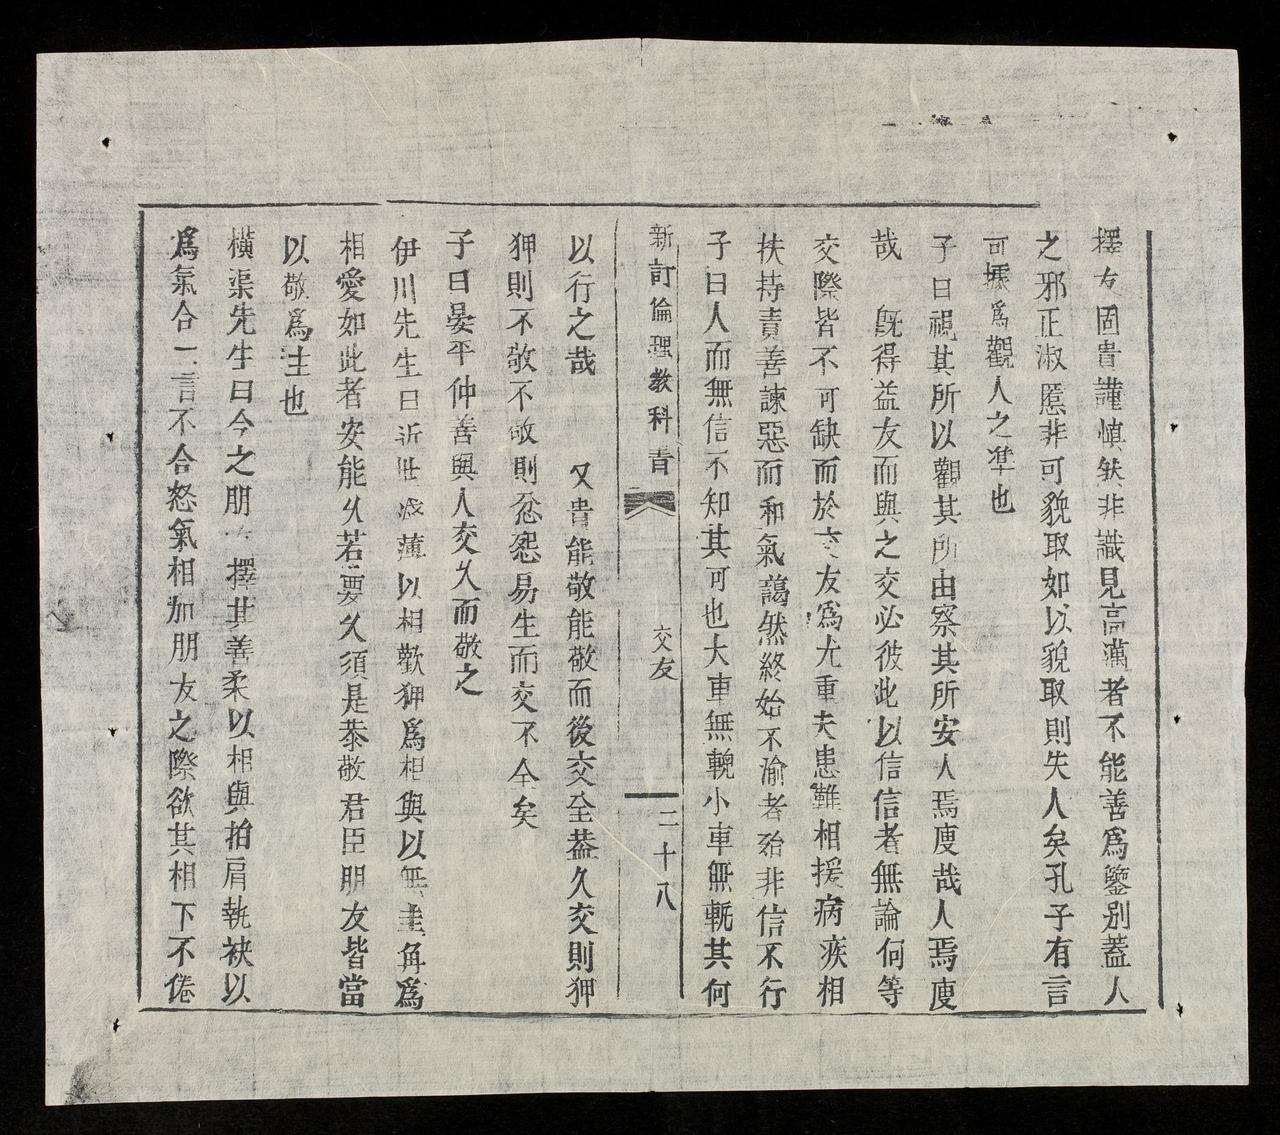 擇友固貴謹慎然非識見高邁者不能善爲鑒別蓋人
之邪正淑慝非可貌取如以貌取則失人矣孔子有言
可據爲觀人之準也
子曰視其所以觀其所由察其所安人焉廋哉人焉廋
哉　旣得益友而與之交必彼此以信信者無論何等
交際皆不可缺而於交友爲尤重夫患難相援病疾相
扶持責善諫惡而和氣藹然終始不渝者殆非信不行
子曰人而無信不知其可也大車無輗小車無軏其何
新訂倫理教科書　交友　二十八
以行之哉　又貴能敬能敬而後交全蓋久交則狎
狎則不敬不敬則忿怨易生而交不全矣
子曰晏平仲善與人交久而敬之
伊川先生曰近世淺薄以相歡狎爲相與以無圭角爲
相愛如此者安能久若要久須是恭敬君臣朋友皆當
以敬爲主也
橫渠先生曰今之朋友擇其善柔以相與拍肩執袂以
爲氣合一言不合怒氣相加朋友之際欲其相下不倦